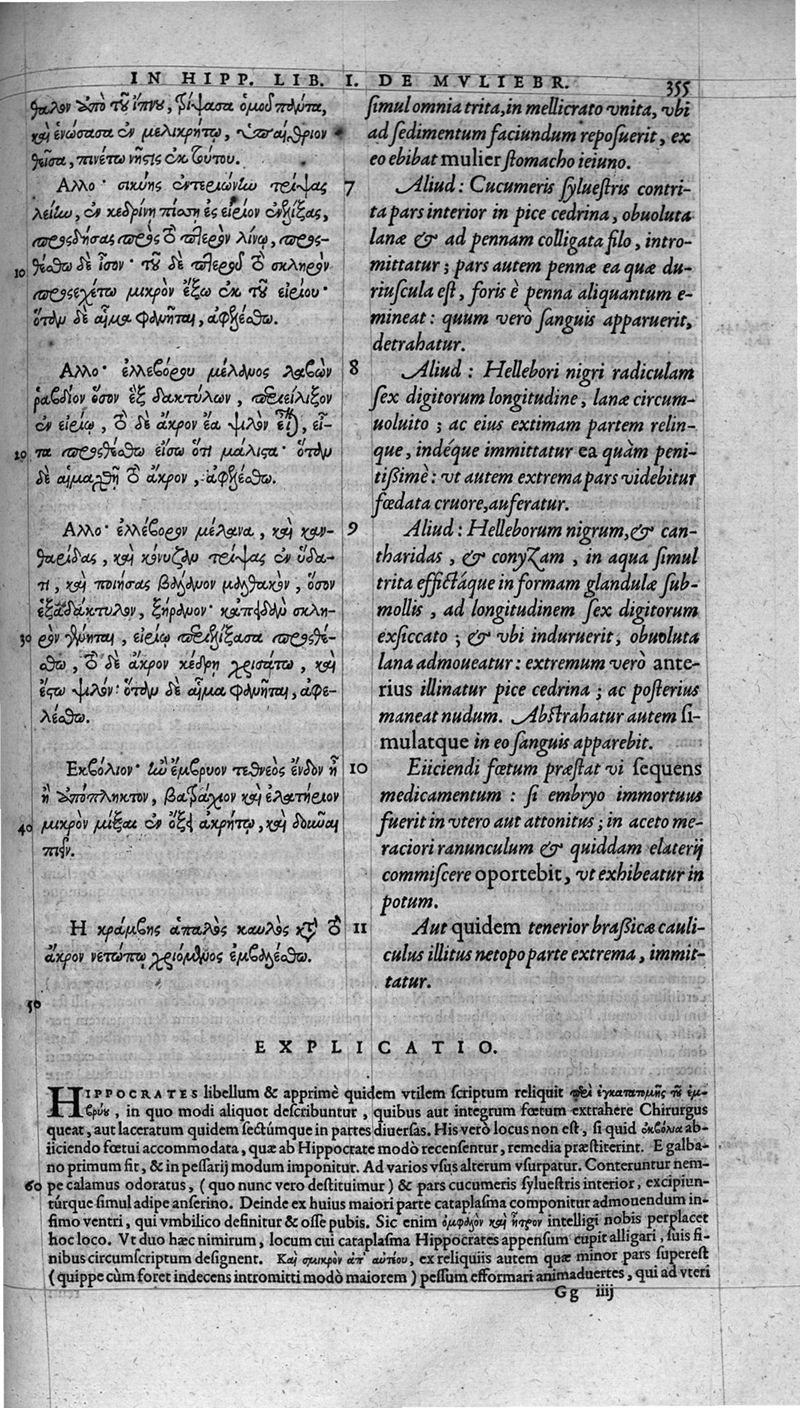 IN HIPP. LIB. I. DE MVLIEBR. 355
γαλὸν ἀπὸ τοῦ ἰπνοῦ, τρίψασα ὁμοῦ πάντα,
καὶ ἑνώσασα ἐν μελικρήτῳ, ὑπαίθριον
θεῖσα, πινέτω νῆστις ἐκ τούτου.
Αλλο· σικύης ἐντεριώνην τρίψας
λείην, ἐν κεδρίνῃ πίσσῃ ἐς εἴριον ἐνελίξας,
προσδήσας πρὸς τὸ πτερὸν λίνῳ, προσ-
10 θέσθω δὲ ἴσον· τοῦ δὲ πτεροῦ τὸ σκληρὸν
προσεχέτω μικρὸν ἔξω ἐκ τοῦ εἰρίου·
ὅταν δὲ αἷμα φανῆται, ἀφελέσθω.
Αλλο· ἐλλεβόρου μέλανος λαβὼν
ῥαβδίον ὅσον ἓξ δακτύλων, περιείλιξον
ἐν εἰρίῳ, τὸ δὲ ἄκρον ἔα ψιλὸν εἶναι, εἶ-
20 τα προσθέσθω εἴσω ὅτι μάλιστα· ὅταν
δὲ αἱμαχθῇ τὸ ἄκρον, ἀφελέσθω.
Αλλο· ἐλλέβορον μέλανα, καὶ καν-
θαρίδας, καὶ κόνυζαν τρίψας ἐν ὕδα-
τι, καὶ ποιήσας βάλανον μαλθακὸν, ὅσον
ἑξαδάκτυλον, ξήρανον· καὶ ἐπειδὰν σκλη-
30 ρὸν γένηται, εἰρίῳ περιελίξασα προσθέ-
σθω, τὸ δὲ ἄκρον κέδρῃ χρισάτω, καὶ
ἔστω ψιλόν· ὅταν δὲ αἷμα φανῆται, ἀφε-
λέσθω.
Εκβόλιον· ἢν ἔμβρυον τεθνεὸς ἔνδον ᾖ
ἢ ἀπόπληκτον, βατράχιον καὶ ἐλατήριον
40 μικρὸν μίξαι ἐν ὄξει ἀκρήτῳ, καὶ δοῦναι
πιεῖν.
Η κράμβης ἁπαλὸς καυλὸς κατὰ τὸ
ἄκρον νετώπῳ χριόμενος ἐμβαλέσθω.
50
simul omnia trita, in mellicrato vnita, vbi
ad sedimentum faciundum reposuerit, ex
eo ebibat mulier stomacho ieiuno.
7 Aliud: Cucumeris syluestris contri-
ta pars interior in pice cedrina, obuoluta
lanæ & ad pennam colligata filo, intro-
mittatur; pars autem pennæ ea quæ du-
riuscula est, foris è penna aliquantum e-
mineat: quum verò sanguis apparuerit,
detrahatur.
8 Aliud: Hellebori nigri radiculam
sex digitorum longitudine, lanæ circum-
uoluito; ac eius extimam partem relin-
que, indéque immittatur ea quàm peni-
tissimè: vt autem extrema pars videbitur
fœdata cruore, auferatur.
9 Aliud: Helleborum nigrum, & can-
tharidas, & conyzam, in aqua simul
trita effictáque in formam glandulæ sub-
mollis, ad longitudinem sex digitorum
exsiccato; & vbi induruerit, obuoluta
lana admoueatur: extremum verò ante-
rius illinatur pice cedrina; ac posterius
maneat nudum. Abstrahatur autem si-
mulatque in eo sanguis apparebit.
10 Eiiciendi fœtum præstat vi sequens
medicamentum: si embryo immortuus
fuerit in vtero aut attonitus; in aceto me-
raciori ranunculum & quiddam elaterij
commiscere oportebit, vt exhibeatur in
potum.
11 Aut quidem tenerior brassicæ cauli-
culus illitus netopo parte extrema, immit-
tatur.
EXPLICATIO.
HIPPOCRATES libellum & apprimè quidem vtilem scriptum reliquit περὶ ἐγκατατομῆς τοῦ ἐμ-
βρύου, in quo modi aliquot describuntur, quibus aut integrum fœtum extrahere Chirurgus
queat, aut laceratum quidem sectúmque in partes diuersas. His verò locus non est, si quid ἐκβόλια ab-
iiciendo fœtui accommodata, quæ ab Hippocrate modò recensentur, remedia præstiterint. E galba-
no primum fit, & in pessarij modum imponitur. Ad varios vsus alterum vsurpatur. Conteruntur nem-
60 pe calamus odoratus, (quo nunc vero destituimur) & pars cucumeris syluestris interior, excipiun-
túrque simul adipe anserino. Deinde ex huius maiori parte cataplasma componitur admouendum in-
fimo ventri, qui vmbilico definitur & osse pubis. Sic enim ὀμφαλὸν καὶ ἦτρον intelligi nobis perplacet
hoc loco. Vt duo hæc nimirum, locum cui cataplasma Hippocrates appensum cupit alligari, suis fi-
nibus circumscriptum designent. Καὶ σμικρὸν ἀπ' αὐτέου, ex reliquiis autem quæ minor pars superest
(quippe cùm foret indecens intromitti modò maiorem) pessum efformari animaduertes, qui ad vteri
Gg iiij